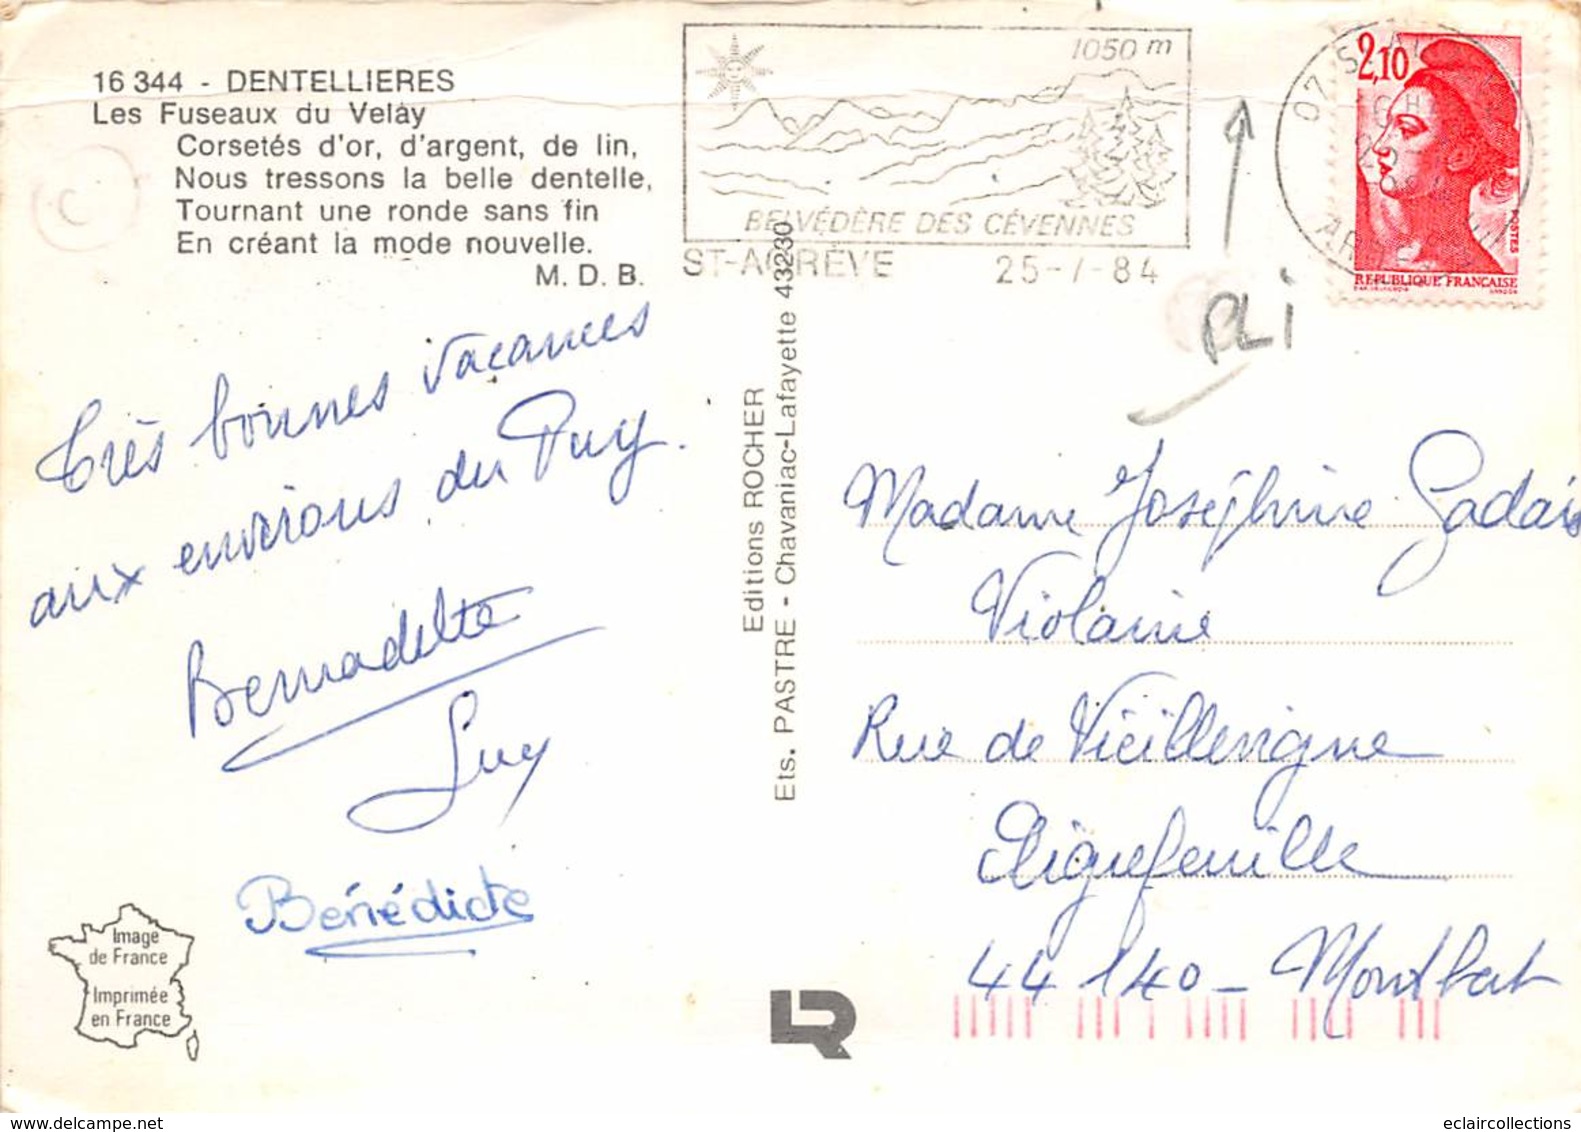 16 344 - DENTELLIERES
Les Fuseaux du Velay
Corsetés d'or, d'argent, de lin,
Nous tressons la belle dentelle,
Tournant une ronde sans fin
En créant la mode nouvelle.
M. D. B.
C
1050 m
BELVÉDÈRE DES CÉVENNES
ST-AGRÈVE 25-7-84
PLi
2,10
POSTES
REPUBLIQUE FRANCAISE
Très bonnes vacances
aux environs du Puy.
Bernadette
Guy
Bénédicte
Editions ROCHER
Ets. PASTRE - Chavaniac-Lafayette 43230
Madame Joséphine Gadais
Violaine
Rue de Vieillevigne
Aigrefeuille
44 140 - Montbert
Image
de France
Imprimée
en France
LR
www.delcampe.net
eclaircollections